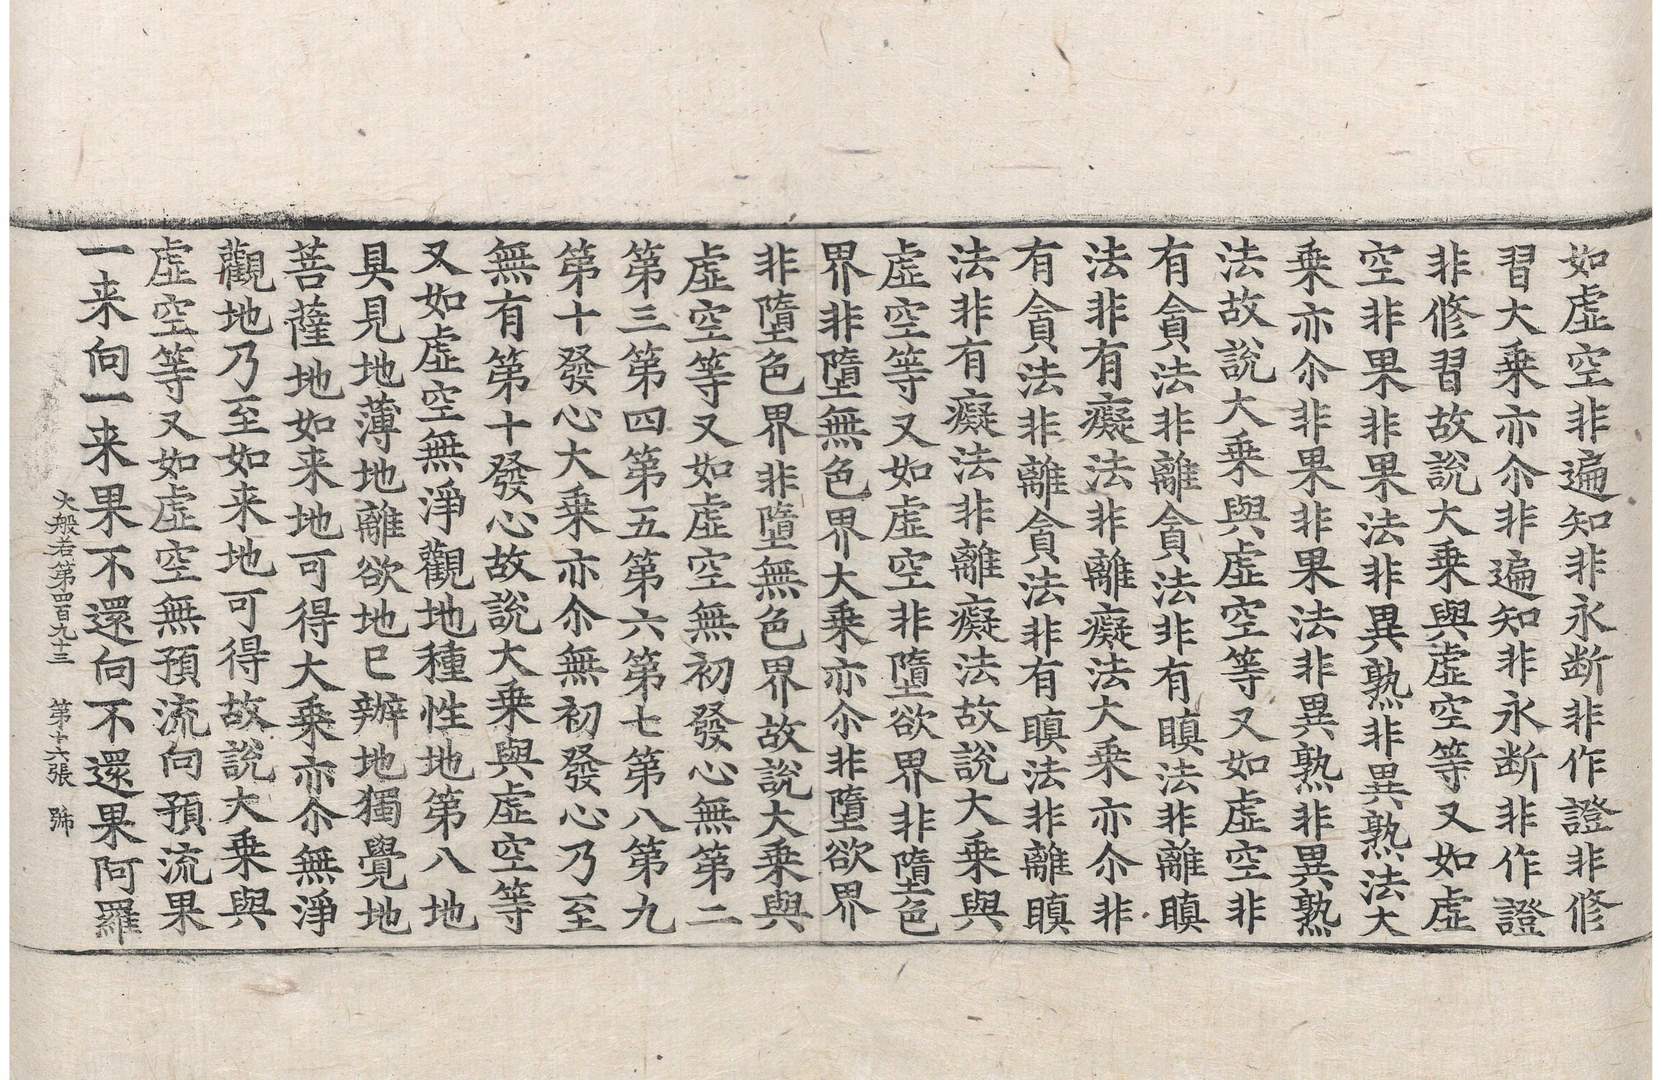 如虛空非遍知非永断非作證非修
習大乗亦尒非遍知非永断非作證
非修習故說大乗與虛空等又如虛
空非果非果法非異熟非異熟法大
乗亦尒非果非果法非異熟非異熟
法故說大乗與虛空等又如虛空非
有貪法非離貪法非有瞋法非離瞋
法非有癡法非離癡法大乗亦尒非
有貪法非離貪法非有瞋法非離瞋
法非有癡法非離癡法故說大乗與
虛空等又如虛空非墮欲界非墮色
界非墮無色界大乗亦尒非墮欲界
非墮色界非墮無色界故說大乗與
虛空等又如虛空無初發心無第二
第三第四第五第六第七第八第九
第十發心大乗亦尒無初發心乃至
無有第十發心故說大乗與虛空等
又如虛空無淨觀地種性地第八地
具見地薄地離欲地巳辦地獨覺地
菩薩地如来地可得大乗亦尒無淨
觀地乃至如来地可得故說大乗與
虛空等又如虛空無預流向預流果
一来向一来果不還向不還果阿羅
大般若第四百九十三 第十六張 號